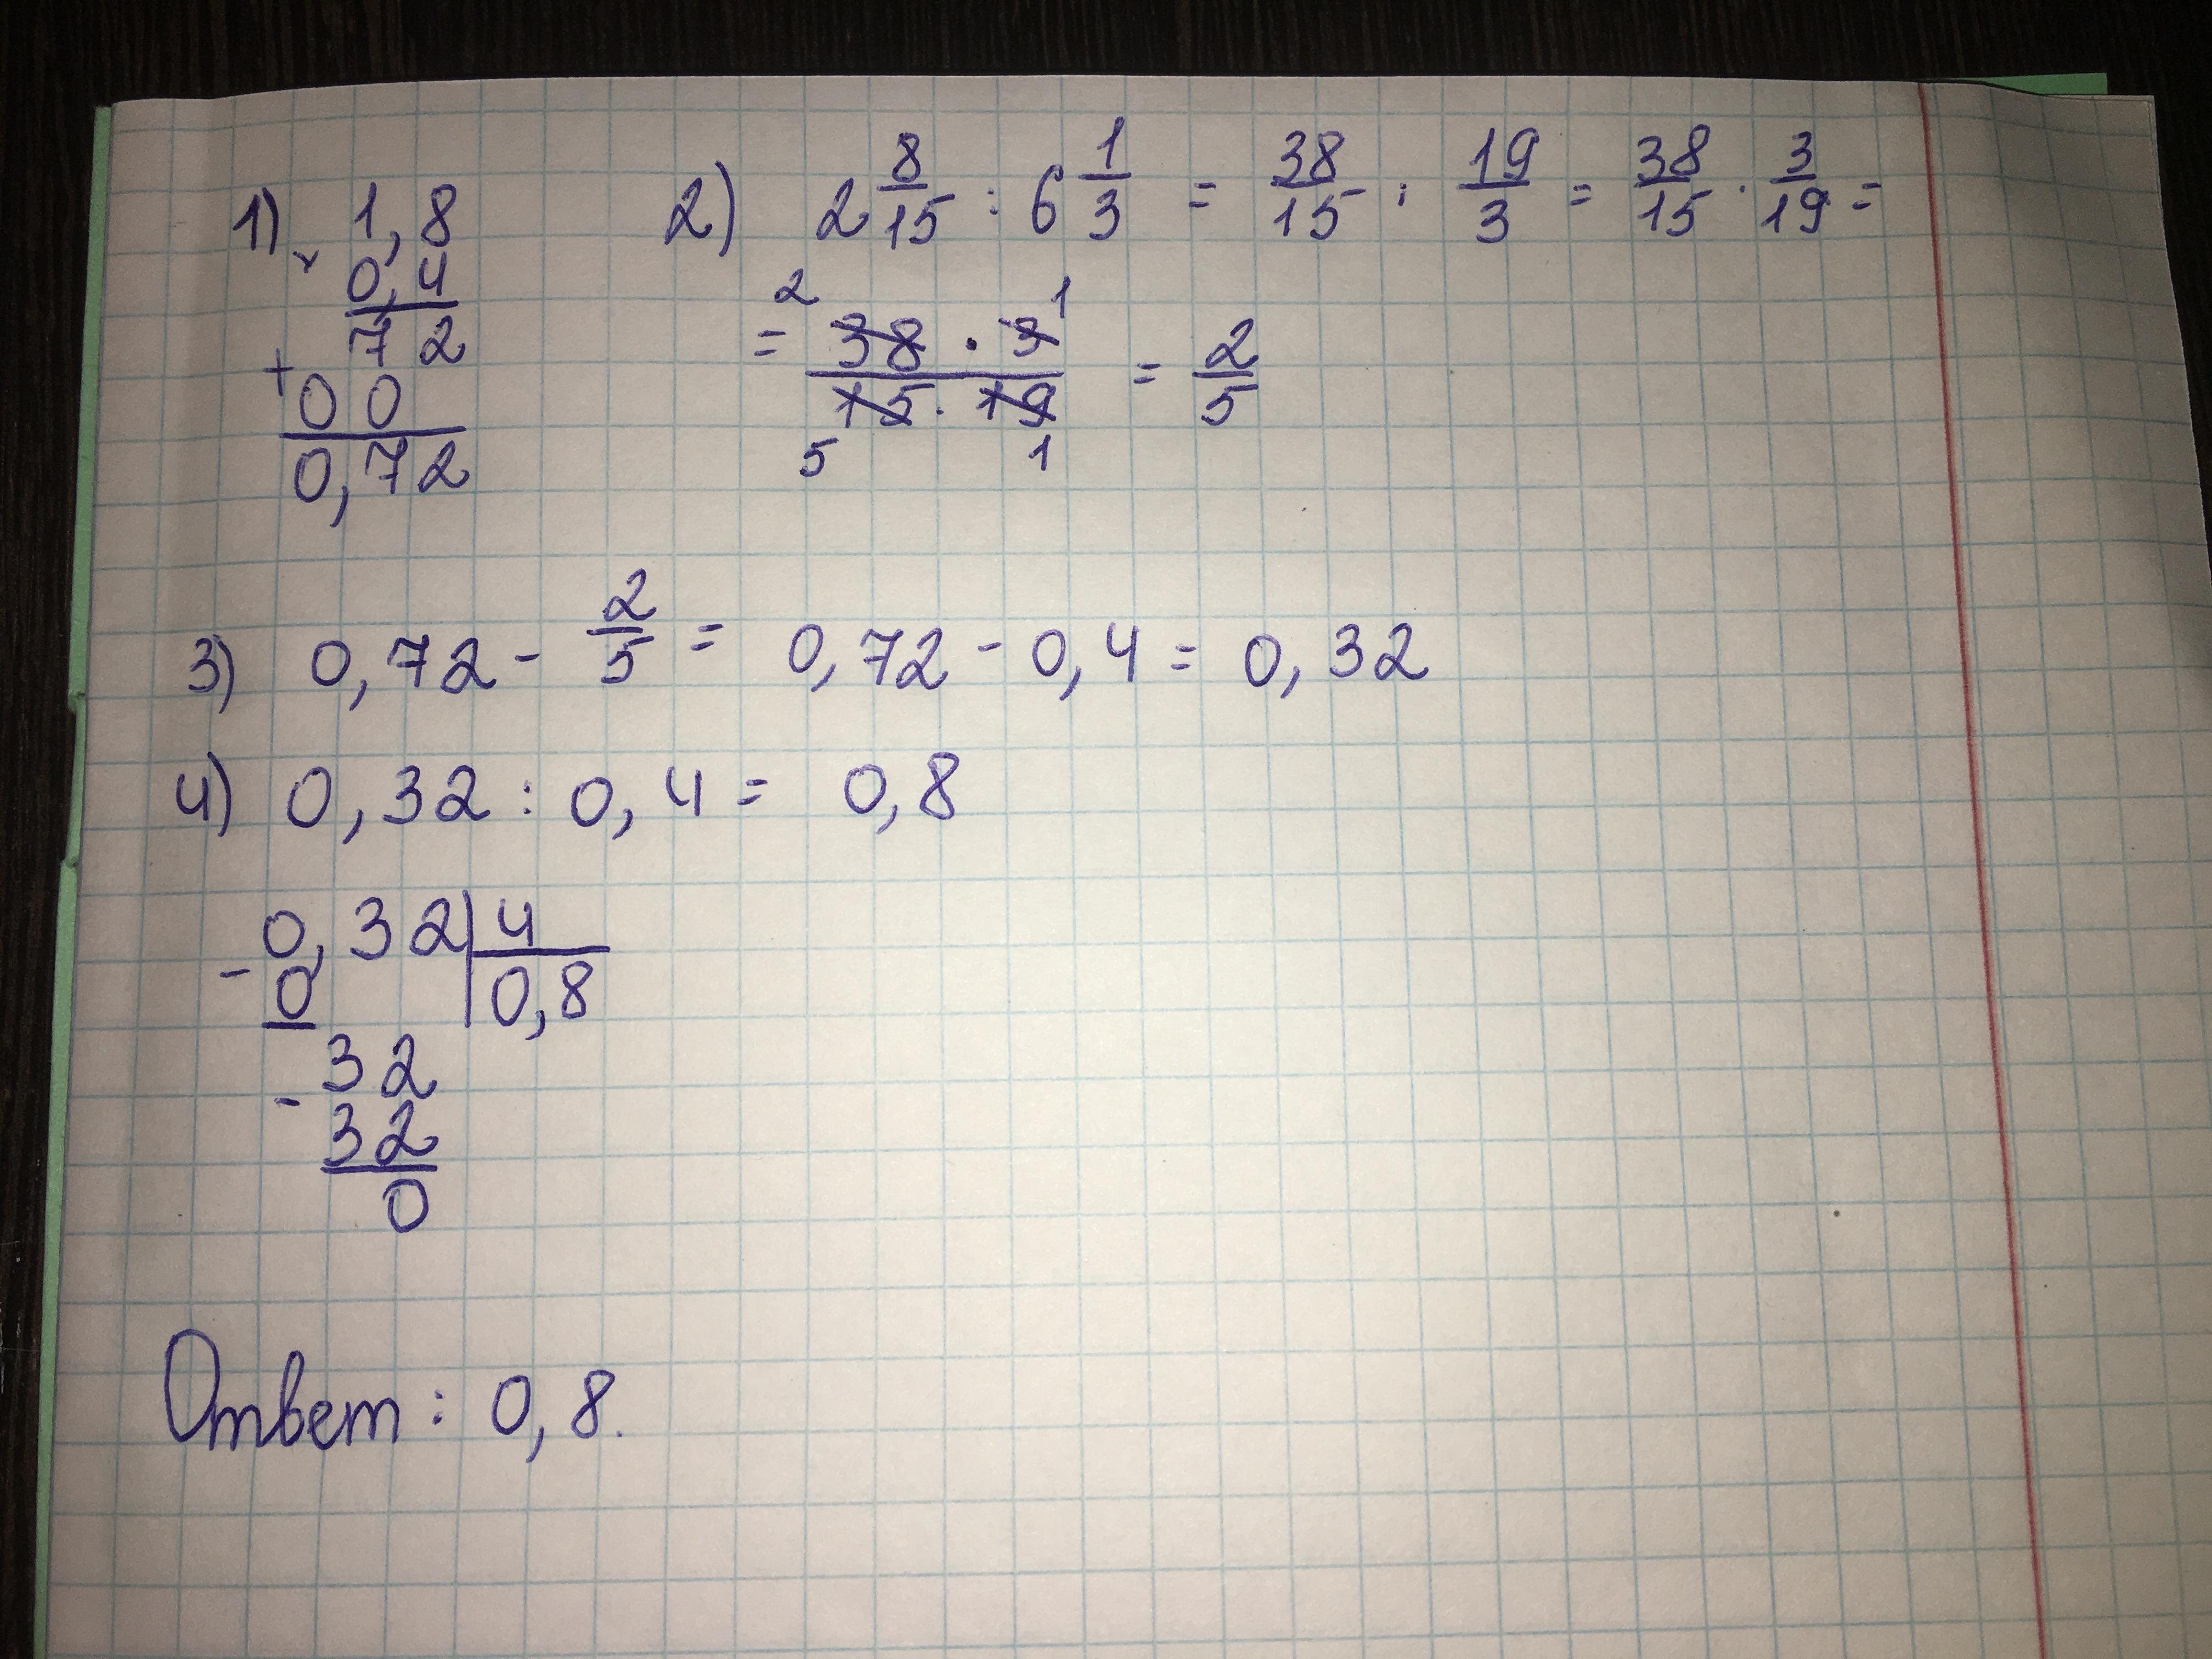 1) × 1,8
0,4
72
+ 00
0,72
2) 2 8/15 : 6 1/3 = 38/15 : 19/3 = 38/15 · 3/19 =
2 1
= 38 · 3 / 15 · 19 = 2/5
5 1
3) 0,72 - 2/5 = 0,72 - 0,4 = 0,32
4) 0,32 : 0,4 = 0,8
- 0,32 | 4
0 | 0,8
- 32
32
0
Ответ: 0,8.